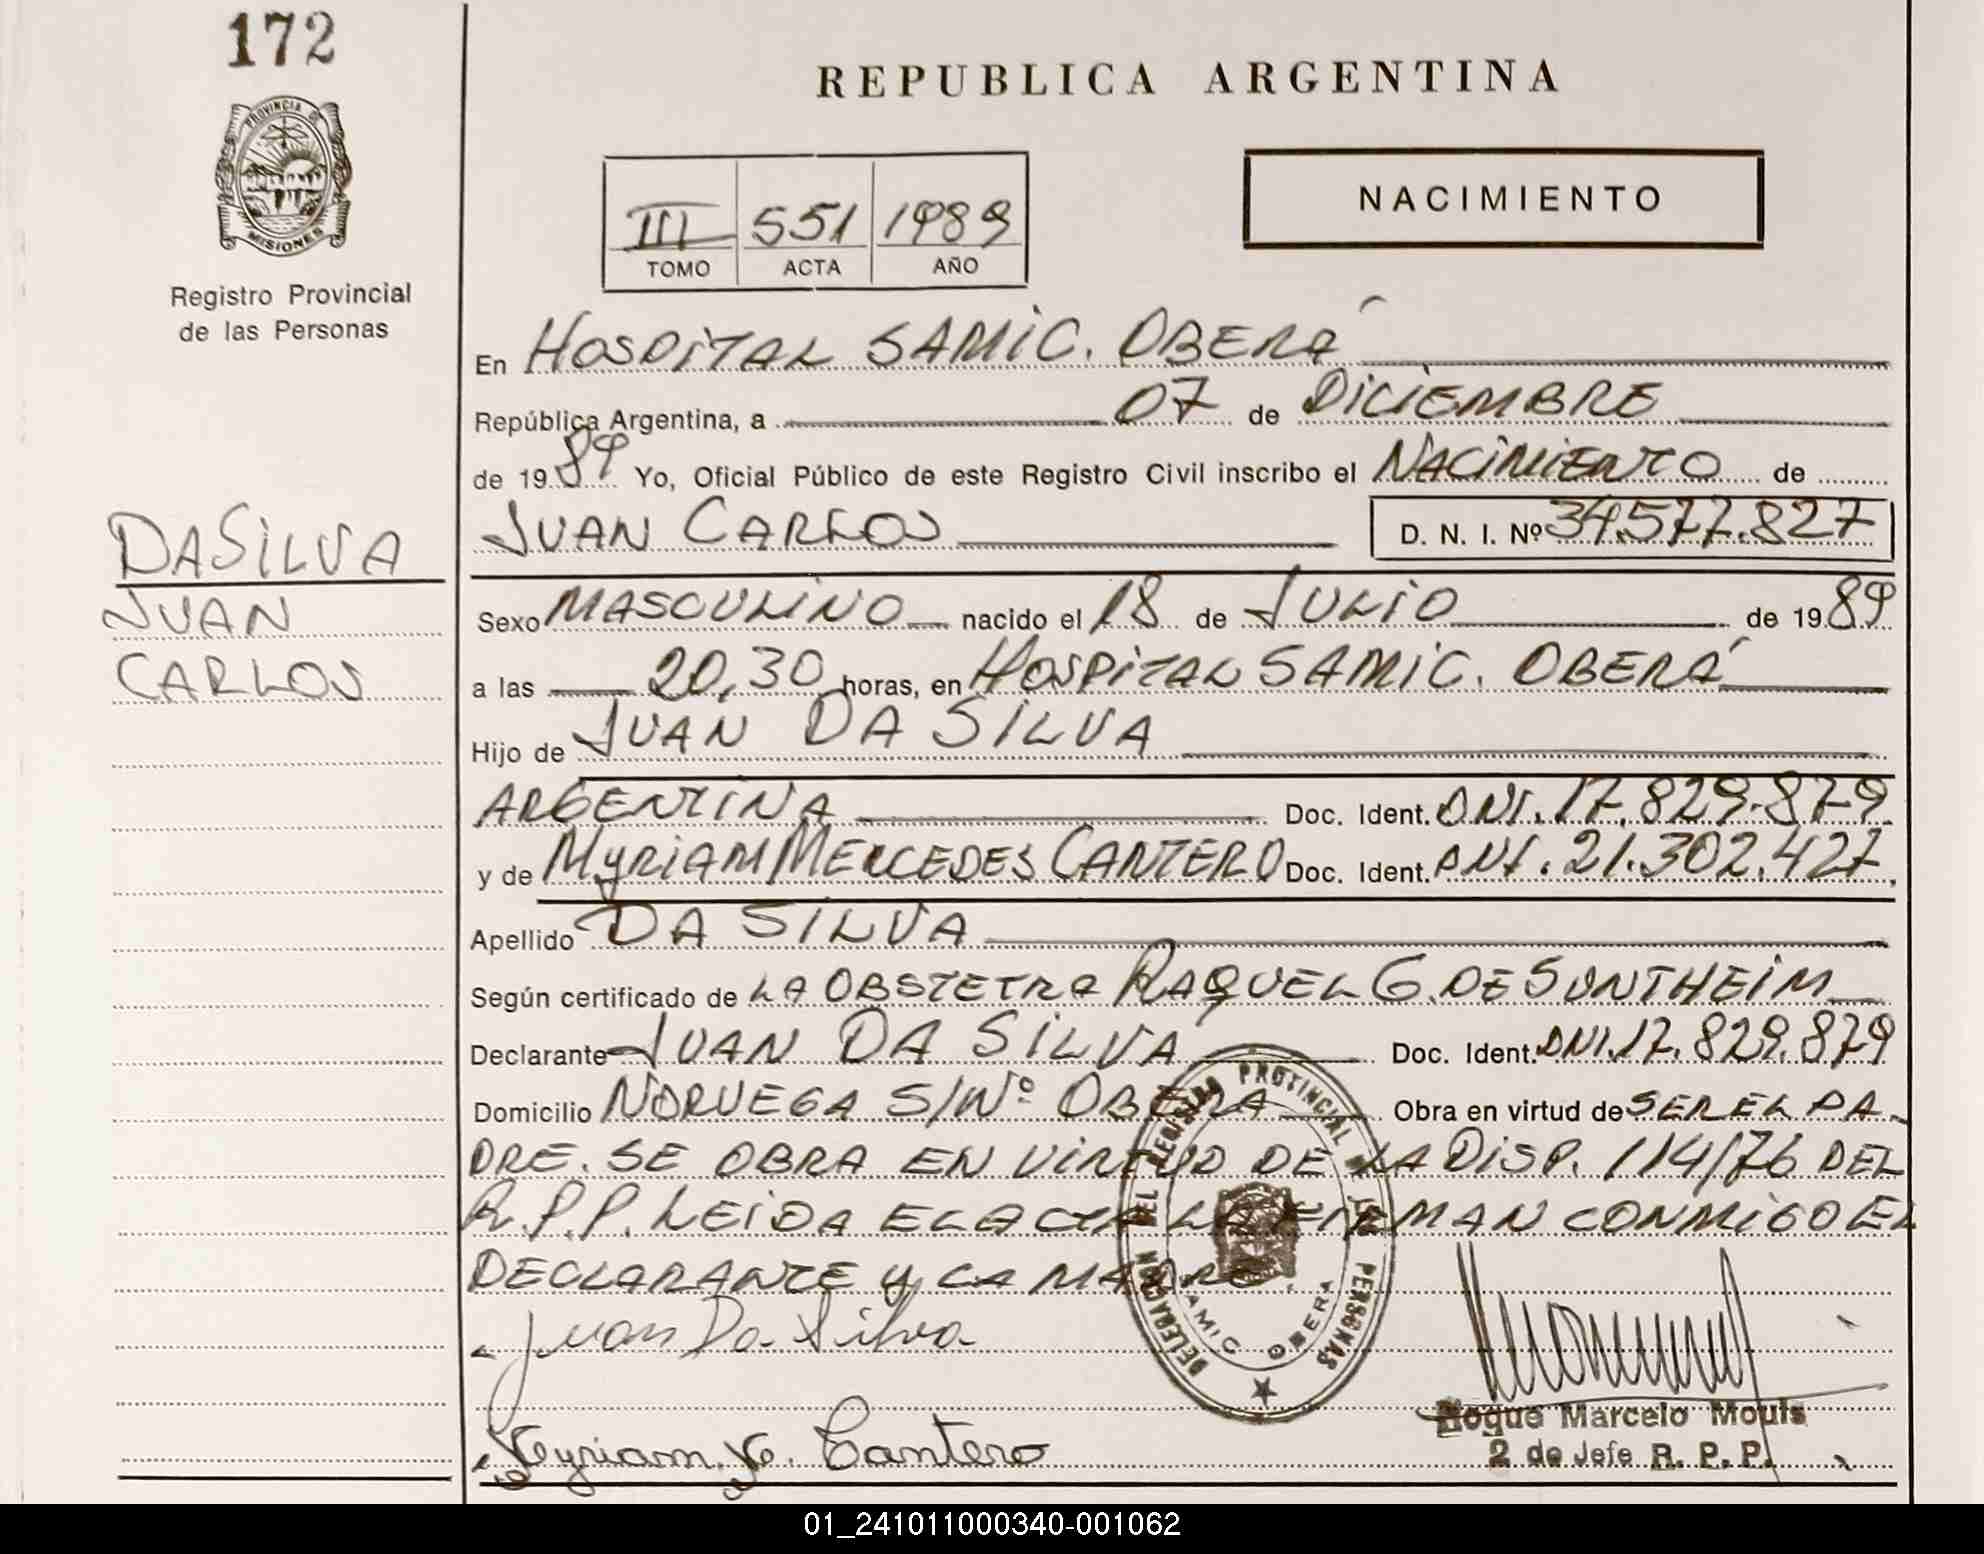 172
PROVINCIA DE
MISIONES
Registro Provincial
de las Personas
DASILVA
JUAN
CARLOS
REPUBLICA ARGENTINA
III 551 1989
TOMO ACTA AÑO
NACIMIENTO
En HOSPITAL SAMIC. OBERÁ
República Argentina, a 07 de DICIEMBRE
de 1989 Yo, Oficial Público de este Registro Civil inscribo el NACIMIENTO de
JUAN CARLOS D. N. I. Nº 34.577.827
Sexo MASCULINO nacido el 18 de JULIO de 1989
a las 20,30 horas, en HOSPITAL SAMIC. OBERÁ
Hijo de JUAN DA SILVA
ARGENTINA Doc. Ident. DNI. 17.829.879
y de MYRIAM MERCEDES CANTERO Doc. Ident. DNI. 21.302.427
Apellido DA SILVA
Según certificado de LA OBSTETRA RAQUEL G. DE SONTHEIM
Declarante JUAN DA SILVA Doc. Ident. DNI. 17.829.879
Domicilio NORUEGA S/Nº OBERA Obra en virtud de SER EL PA-
DRE. SE OBRA EN VIRTUD DE LA DISP. 114/76 DEL
R.P.P. LEIDA EL ACTA LA FIRMAN CONMIGO EL
DECLARANTE Y LA MADRE.
Juan Da Silva
Myriam M. Cantero
DELEGACION DEL REGISTRO PROVINCIAL DE LAS PERSONAS
SAMIC OBERA
Roque Marcelo Mouls
2 de Jefe R. P. P.
01_241011000340-001062